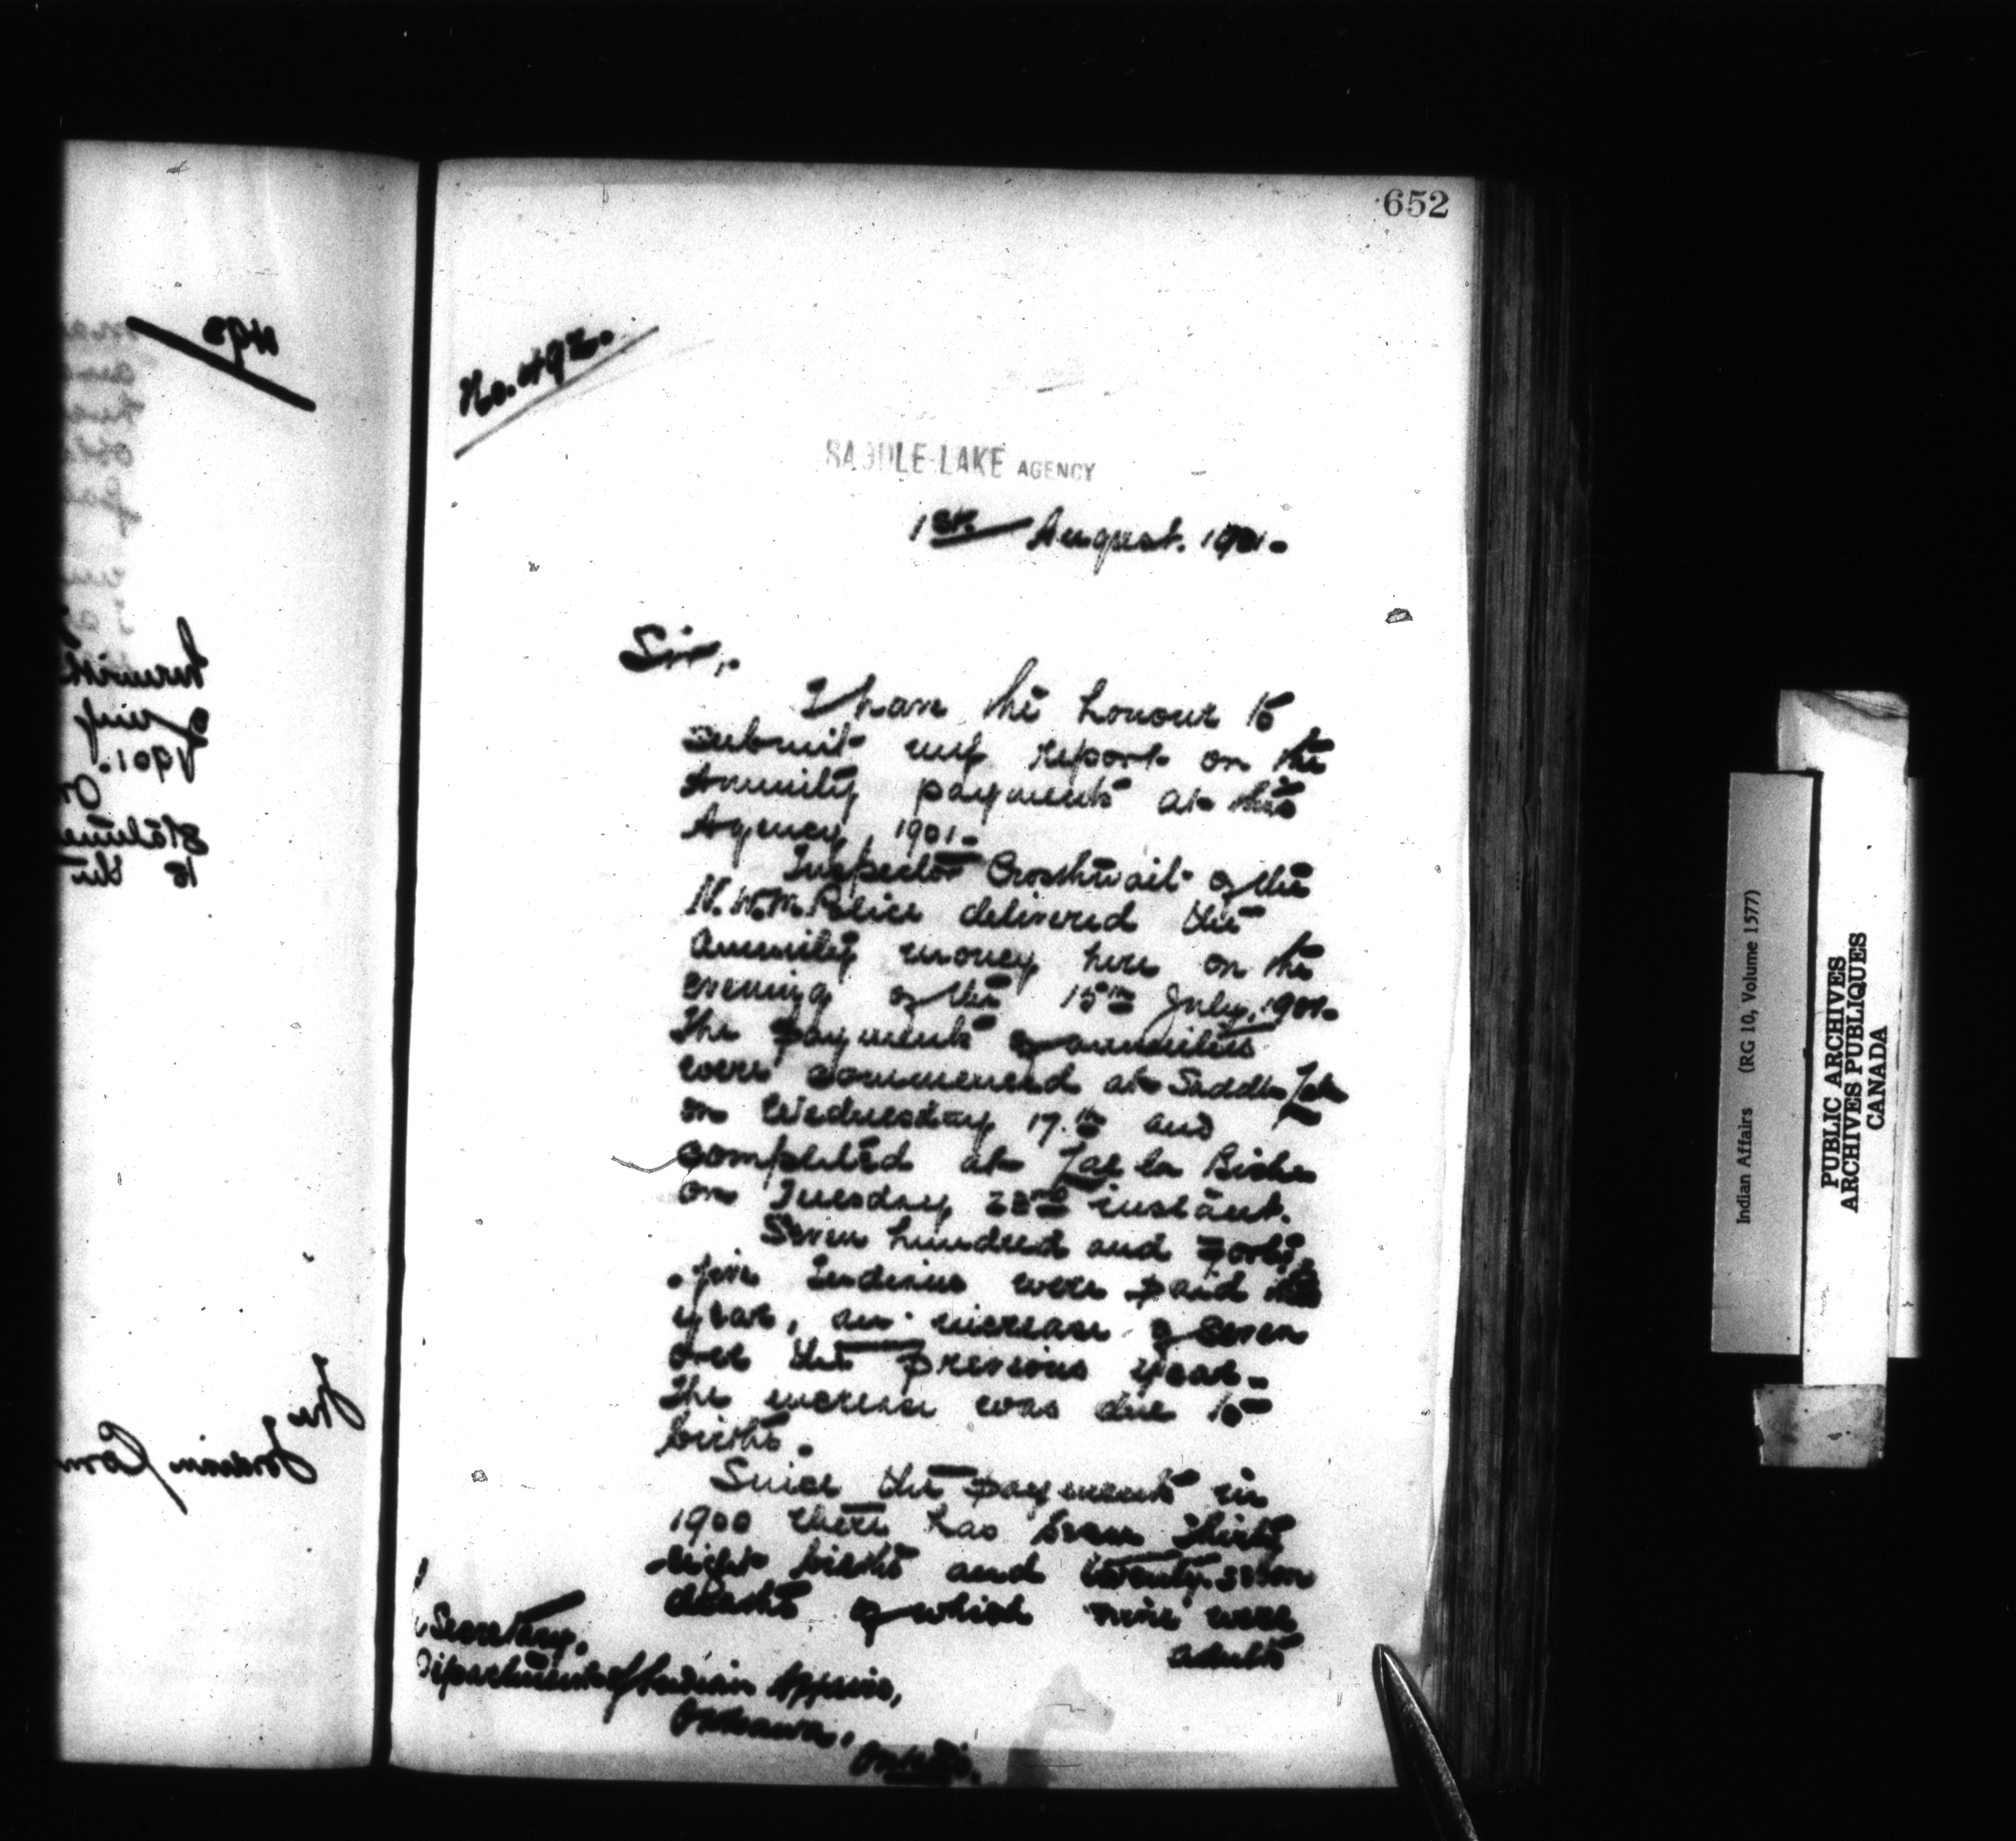 652
No. 492.
SADDLE-LAKE AGENCY
1st August. 1901.
Sir,
I have the honour to
submit my report on the
Annuity payments at this
Agency, 1901.
Inspector Crosthwait of the
N.W.M. Police delivered the
annuity money here on the
evening of the 15th July, 1901.
The payments of annuities
were commenced at Saddle Lake
on Wednesday 17.th and
completed at Lac la Biche
on Tuesday instant.
Seven hundred and forty
five Indians were paid this
year, an increase of seven
over the previous year.
The increase was due to
births.
Since the payments in
1900 there has been thirty
eight births and twenty seven
deaths of which nine were
adults
Secretary,
Department of Indian Affairs,
Ottawa,
Ontario.
493
1901.
Indian Affairs (RG 10, Volume 1577)
PUBLIC ARCHIVES
ARCHIVES PUBLIQUES
CANADA